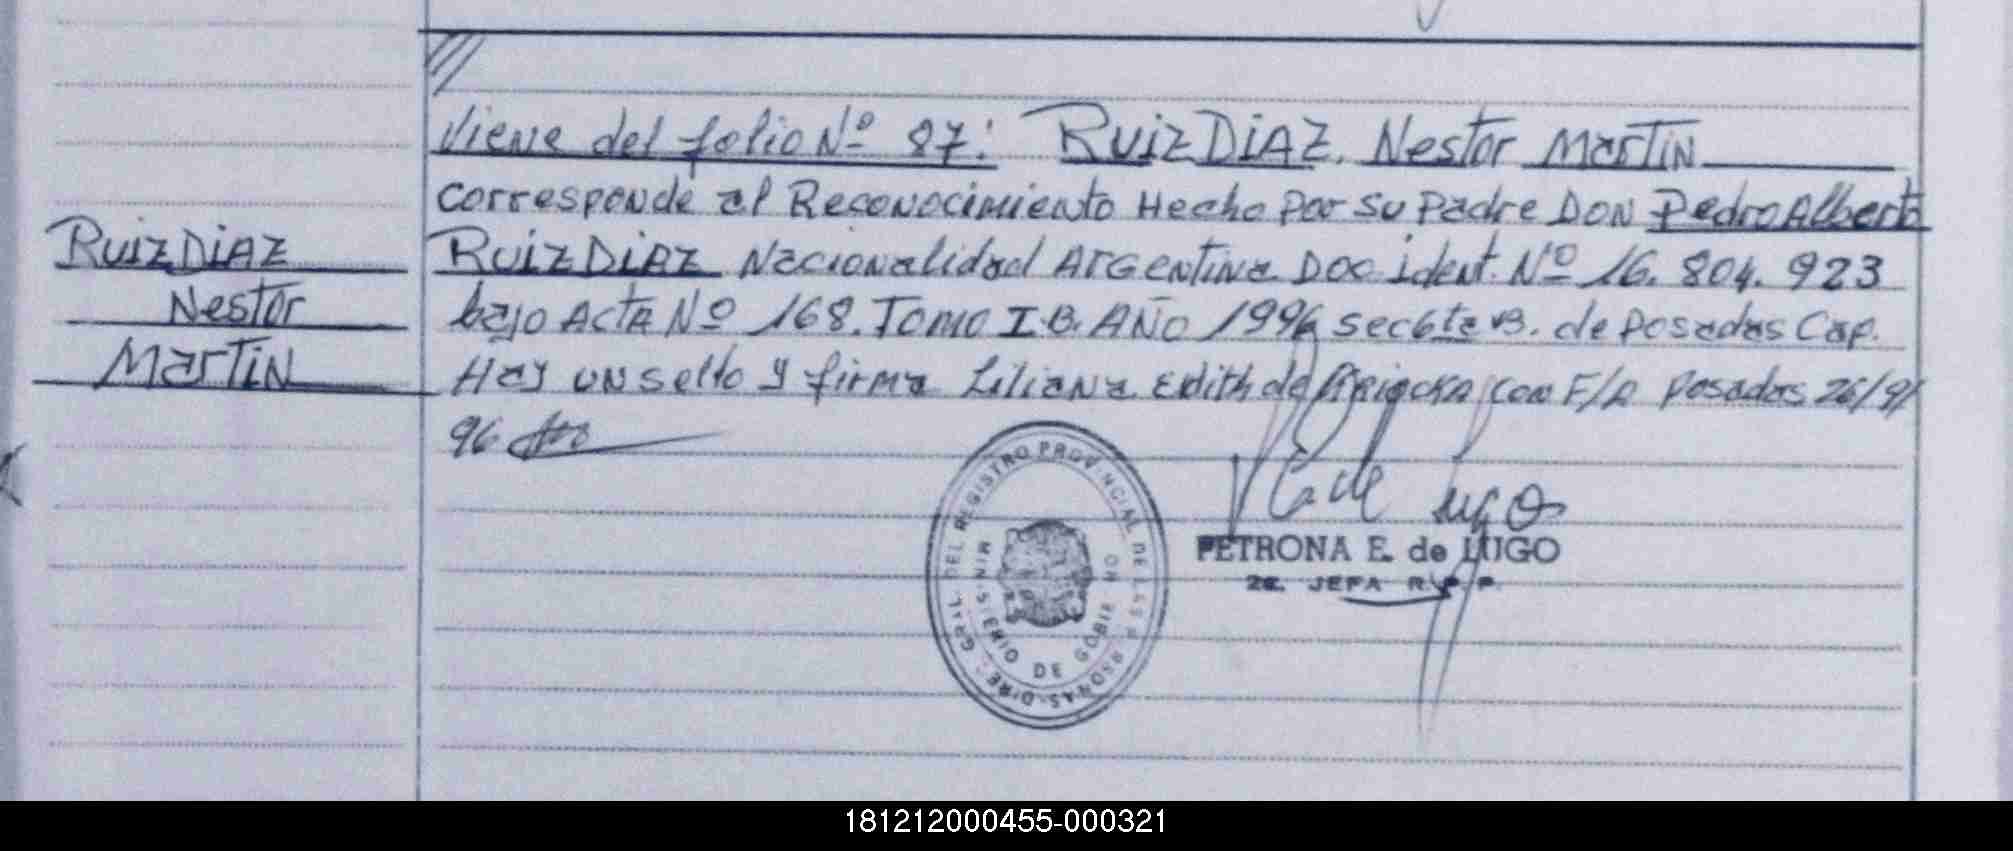 Viene del folio Nº 87: RUIZ DIAZ, Nestor Martin
corresponde al Reconocimiento Hecho por su Padre DON Pedro Alberto
RUIZ DIAZ Nacionalidad Argentina Doc ident. Nº 16.804.923
bajo Acta Nº 168. Tomo I.B. AÑO 1996 sec 6ta B. de Posadas Cap.
Hay un sello y firma Liliana Edith de con F/A Posadas 26/9/
96
RUIZ DIAZ
Nestor
Martin
DIRE. GRAL. DEL REGISTRO PROVINCIAL DE LAS PERSONAS
MINISTERIO DE GOBIERNO
de Lugo
PETRONA E. de LUGO
2a. JEFA R.P.P.
181212000455-000321